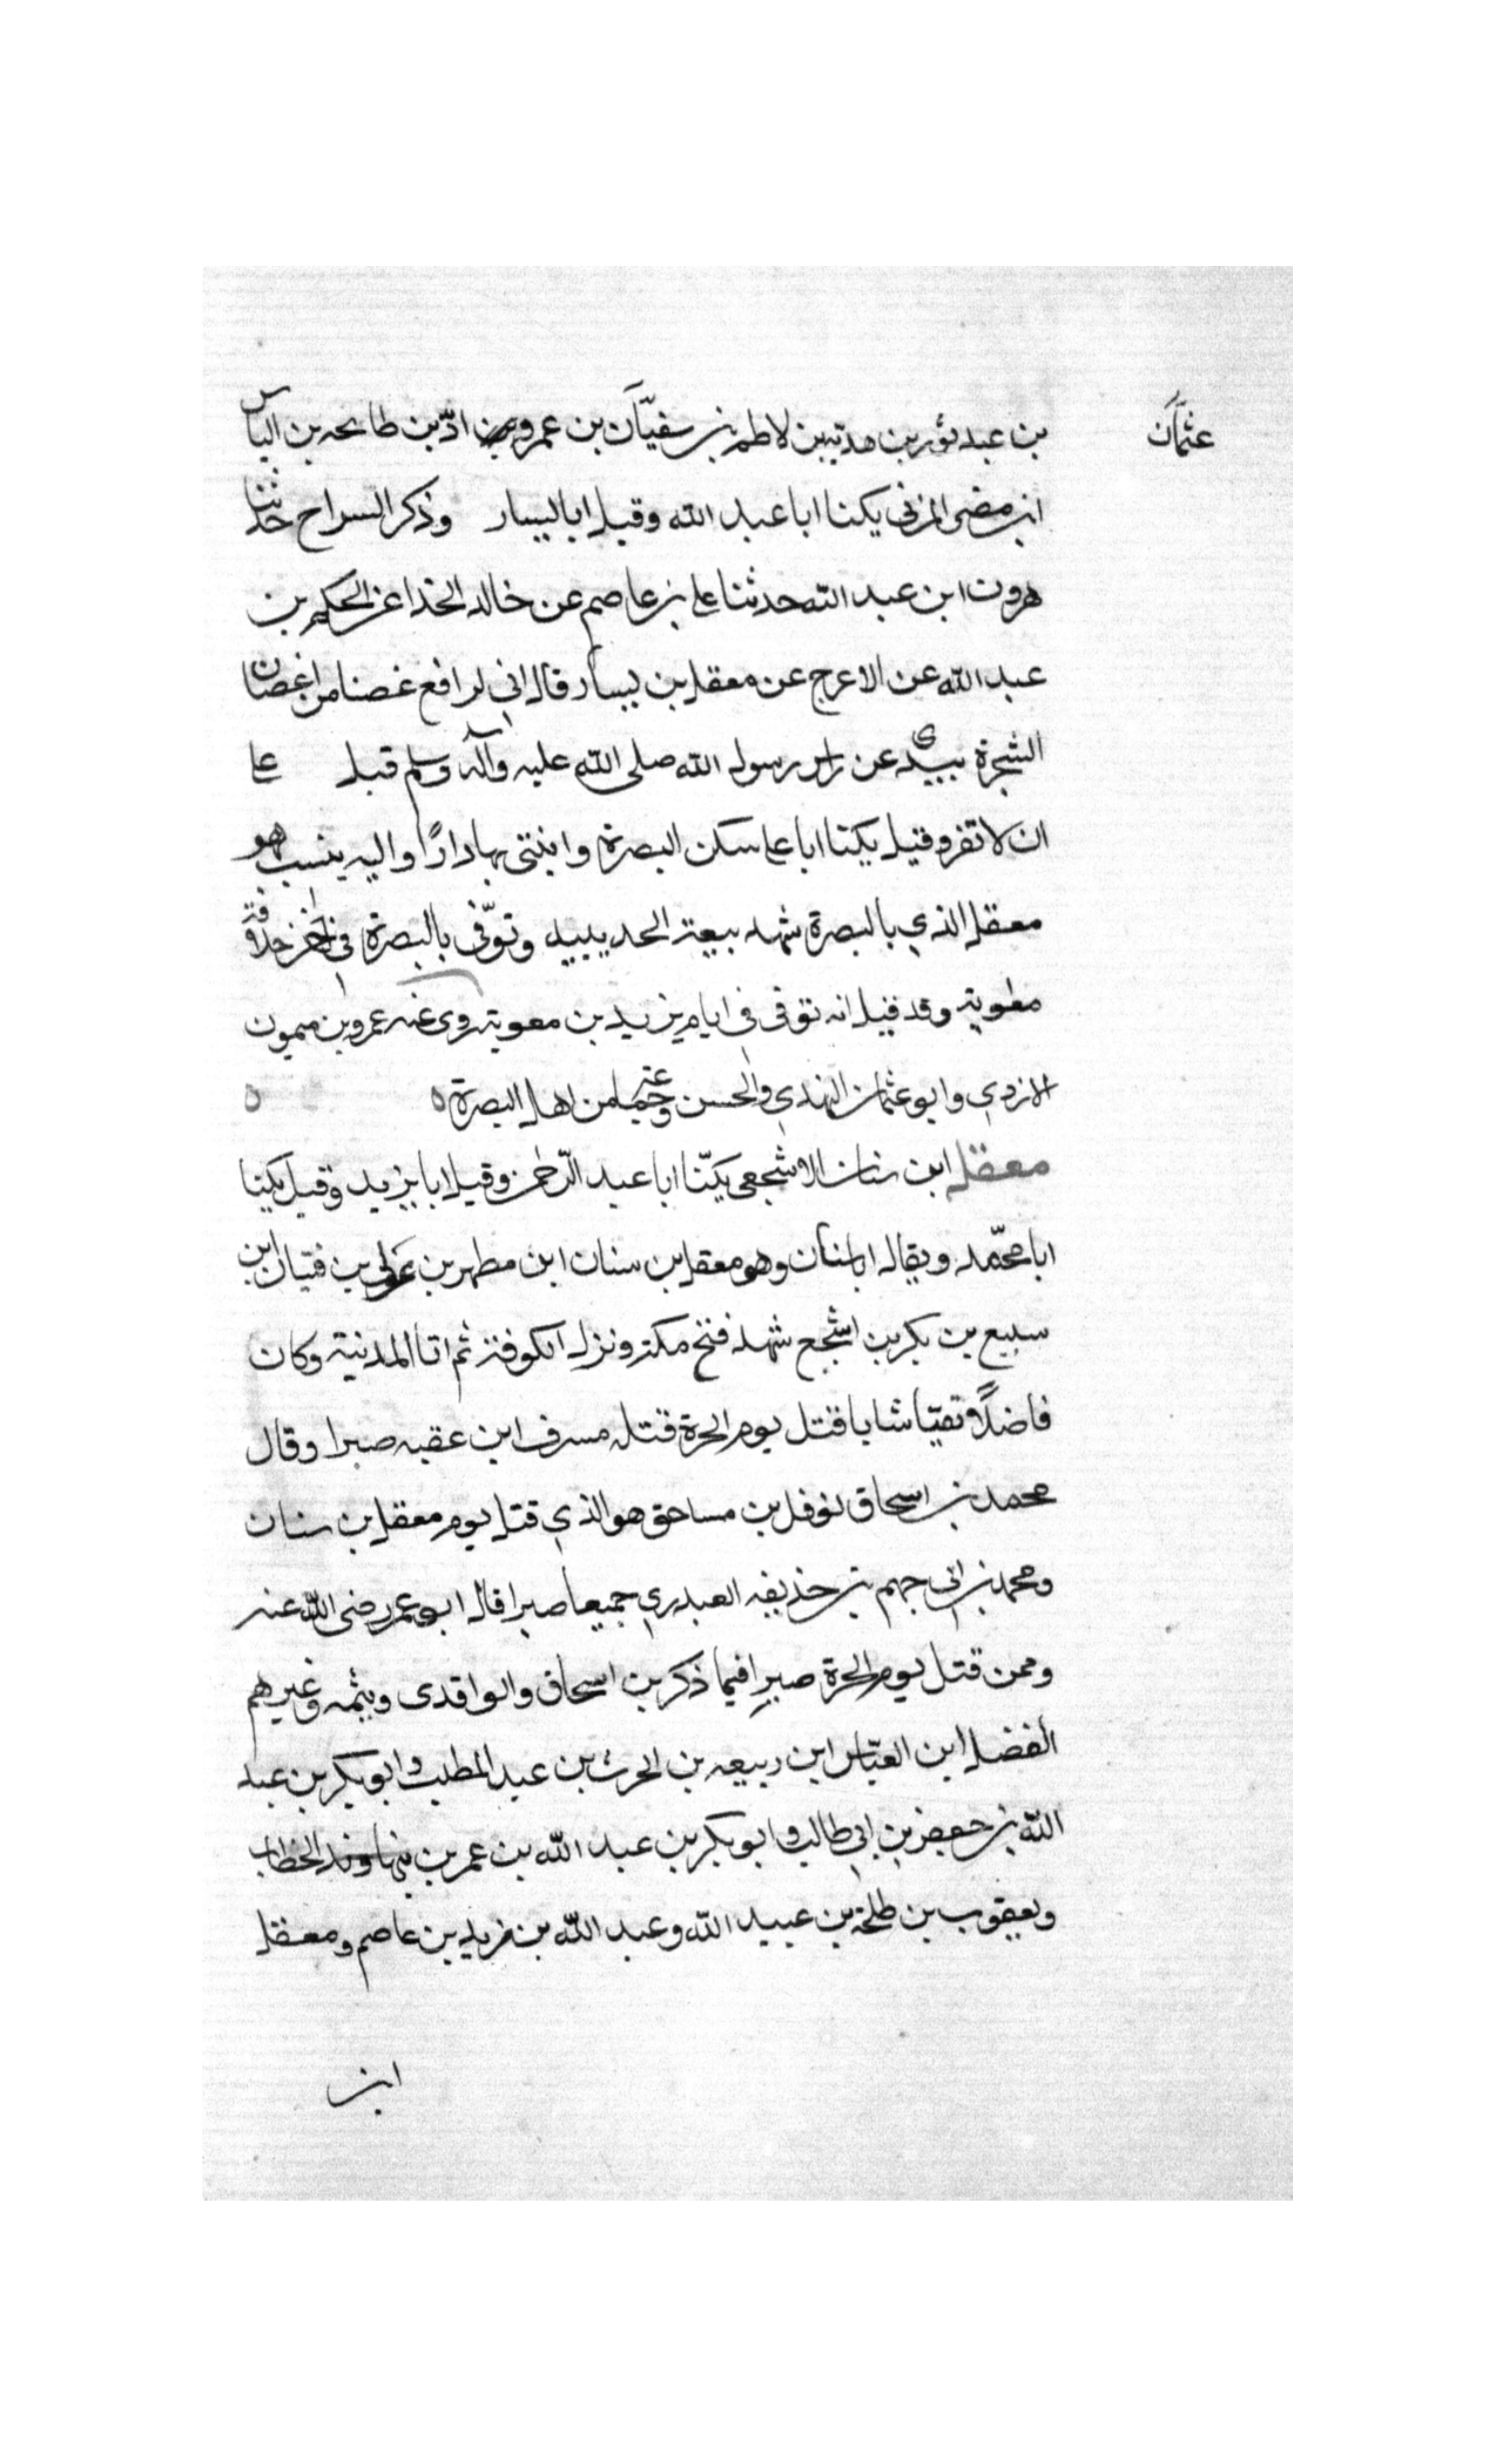 عثمان
بن عبد ثور بن هدبة بن لاطم بن سفيّان بن عمرو بن ادّ بن طابخه بن الياس
ابن مضر المزنى يكنا ابا عبد الله وقيل ابا اليسار وذكر السراح حدثنا
هرون ابن عبد الله حدثنا على بن عاصم عن خالد الخذا عن الحكم بن
عبد الله عن الاعرج عن معقل بن يسار قال انى لرافع غصنا من اغصان
الشجرة بيدى عن راس رسول الله صلى الله عليه وآله وسلم قبل على
ان لا تفر وقيل يكنا ابا على سكن البصرة وابنتى بها دارًا واليه ينسب هو
معقل الذي بالبصرة شهد بيعة الحديبيه وتوّفى بالبصرة في اخر خلافة
معوية وقد قيل انه توفى فى ايام يزيد بن معوية روى عنه عمرو بن ميمون
الازدي وابو عثمان النهدي والحسن وجماعة من اهل البصرة ه ه
معقل ابن سنان الاشجعى يكنّا ابا عبد الرّحمن وقيل ابا يزيد وقيل يكنا
ابا محمّد ويقال ابا سنان وهو معقل بن سنان ابن مطهر بن عركى بن فتيان ابن
سبيع بن بكر بن اشجع شهد فتح مكة ونزل الكوفة ثم اتا المدنية وكان
فاضلًا تقيّا شابا قتل يوم الحرة قتله مسرف ابن عقبه صبرا وقال
محمد بن اسحاق نوفل بن مساحق هو الذي قتل يوم معقل بن سنان
ومحمد بن ابى جهم بن حذيفه العبدري جميعا صبرا قال ابو عمر رضى الله عنه
وممن قتل يوم الحرة صبرا فيما ذكر بن اسحاق والواقدى وثيمه وغيرهم
الفضل ابن العبّاس ابن ربيعه بن الحرث بن عبد المطلب وابو بكر بن عبد
الله بن جعفر بن ابي طالب وابو بكر بن عبد الله بن عمر بن الخطاب
ويعقوب بن طلحة بن عبيد الله وعبد الله بن زيد بن عاصم ومعقل
ابن